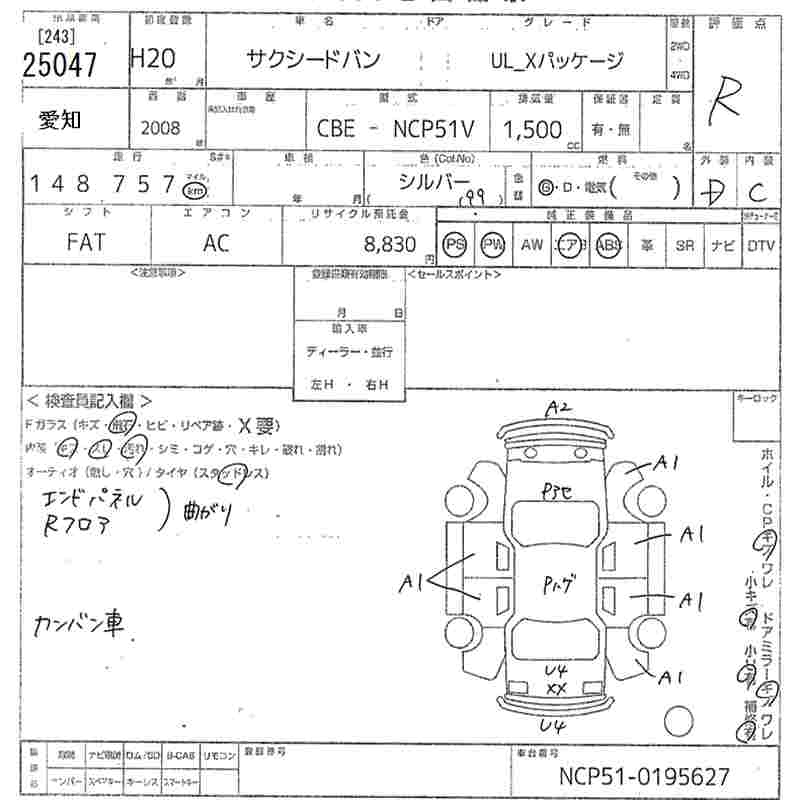 出品番号 初度登録 車名 ドア グレード 評価点
[243]
25047 H20 サクシードバン UL_Xパッケージ 2WD・4WD R
年 月
西暦 車歴 型式 排気量 保証書 定員
愛知 2008 年 CBE - NCP51V 1,500 CC 有・無 名
走行 車検 色(Col.No) 燃料 その他 外装 内装
148757 マイル km 年 月 シルバー (199) G・D・電気( ) D C
シフト エアコン リサイクル預託金 純正装備品
FAT AC 8,830 円 PS PW AW エアB ABS 革 SR ナビ DTV
<注意事項> <セールスポイント>
月 日
輸入車
ディーラー・並行
左H ・ 右H
キーロック
< 検査員記入欄 >
Fガラス (キズ・飛石・ヒビ・リペア跡・X要)
内装 (キズ・スレ・汚れ・シミ・コゲ・穴・キレ・破れ・割れ)
オーディオ (無し・穴) / タイヤ (スタッドレス)
エンドパネル
Rフロア ) 曲がり
カンバン車
A2
A1
A1
A1
A1
A1
U4
XX
U4
ホイル・CPキズワレ
ドアミラーキズワレ
小キズ有
登録番号 車台番号
リモコン
キーレス
スマートキー
NCP51-0195627